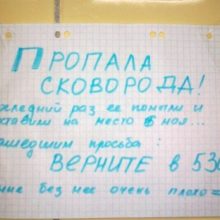 ПРОПАЛА
СКОВОРОДА!
последний раз ее помыли и
ставили на место 6 ноя...
ашедшим просьба:
ВЕРНИТЕ в 530
мне без нее очень плохо